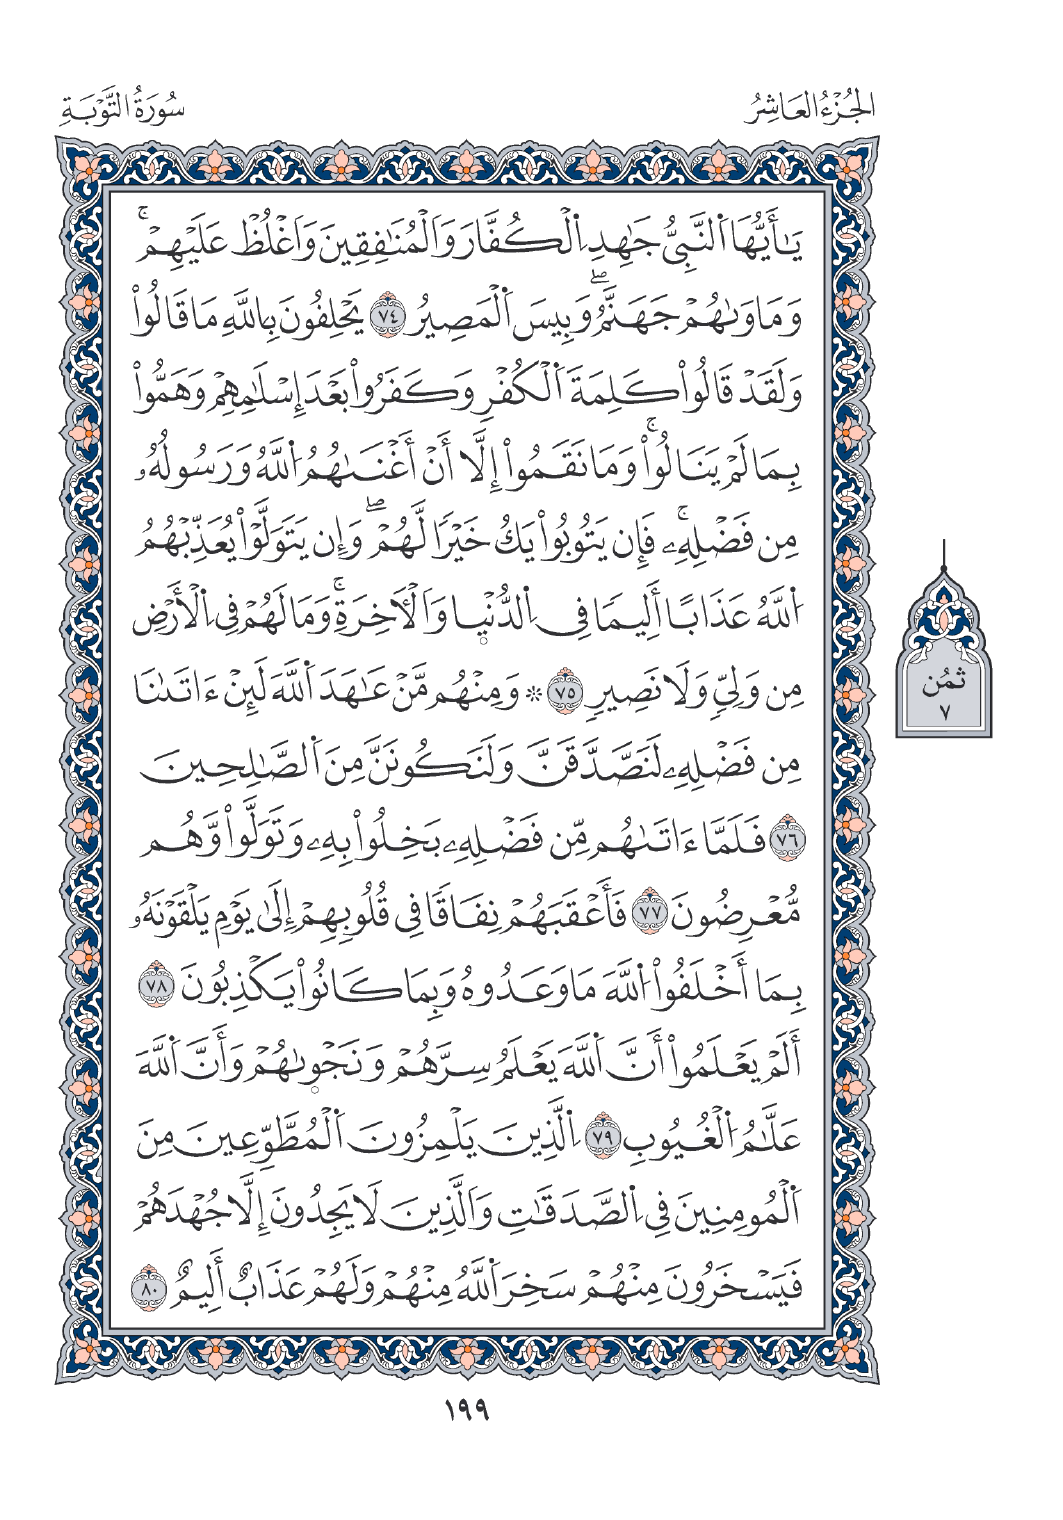 الجُزْءُ العَاشِرُ
سُورَةُ التَّوْبَةِ
يَٰٓأَيُّهَا اَ۬لنَّبِيُّ جَٰهِدِ اِ۬لْكُفَّارَ وَالْمُنَٰفِقِينَ وَاغْلُظْ عَلَيْهِمْۚ
وَمَاوَىٰهُمْ جَهَنَّمُۖ وَبِيسَ اَ۬لْمَصِيرُ ٧٤ يَحْلِفُونَ بِاللَّهِ مَا قَالُواْ
وَلَقَدْ قَالُواْ كَلِمَةَ اَ۬لْكُفْرِ وَكَفَرُواْ بَعْدَ إِسْلَٰمِهِمْ وَهَمُّواْ
بِمَا لَمْ يَنَالُواْۚ وَمَا نَقَمُواْ إِلَّا أَنْ أَغْنَىٰهُمُ اُ۬للَّهُ وَرَسُولُهُۥ
مِن فَضْلِهِۦۚ فَإِن يَتُوبُواْ يَكُ خَيْرًا لَّهُمْۖ وَإِن يَتَوَلَّوْاْ يُعَذِّبْهُمُ
اُ۬للَّهُ عَذَابًا أَلِيمًا فِي اِ۬لدُّنْيَا وَالْأٓخِرَةِۚ وَمَا لَهُمْ فِي اِ۬لْأَرْضِ
مِن وَلِيٍّ وَلَا نَصِيرٍ ٧٥ ۞ وَمِنْهُم مَّنْ عَٰهَدَ اَ۬للَّهَ لَئِنْ ءَاتَىٰنَا
مِن فَضْلِهِۦ لَنَصَّدَّقَنَّ وَلَنَكُونَنَّ مِنَ اَ۬لصَّٰلِحِينَ
٧٦ فَلَمَّا ءَاتَىٰهُم مِّن فَضْلِهِۦ بَخِلُواْ بِهِۦ وَتَوَلَّواْ وَّهُم
مُّعْرِضُونَ ٧٧ فَأَعْقَبَهُمْ نِفَاقًا فِي قُلُوبِهِمْ إِلَىٰ يَوْمِ يَلْقَوْنَهُۥ
بِمَا أَخْلَفُواْ اُ۬للَّهَ مَا وَعَدُوهُ وَبِمَا كَانُواْ يَكْذِبُونَ ٧٨
أَلَمْ يَعْلَمُواْ أَنَّ اَ۬للَّهَ يَعْلَمُ سِرَّهُمْ وَنَجْوَىٰهُمْ وَأَنَّ اَ۬للَّهَ
عَلَّٰمُ اُ۬لْغُيُوبِ ٧٩ اِ۬لَّذِينَ يَلْمِزُونَ اَ۬لْمُطَّوِّعِينَ مِنَ
اَ۬لْمُومِنِينَ فِي اِ۬لصَّدَقَٰتِ وَالَّذِينَ لَا يَجِدُونَ إِلَّا جُهْدَهُمْ
فَيَسْخَرُونَ مِنْهُمْ سَخِرَ اَ۬للَّهُ مِنْهُمْ وَلَهُمْ عَذَابٌ أَلِيمٌ ٨٠
ثُمُن
٧
١٩٩